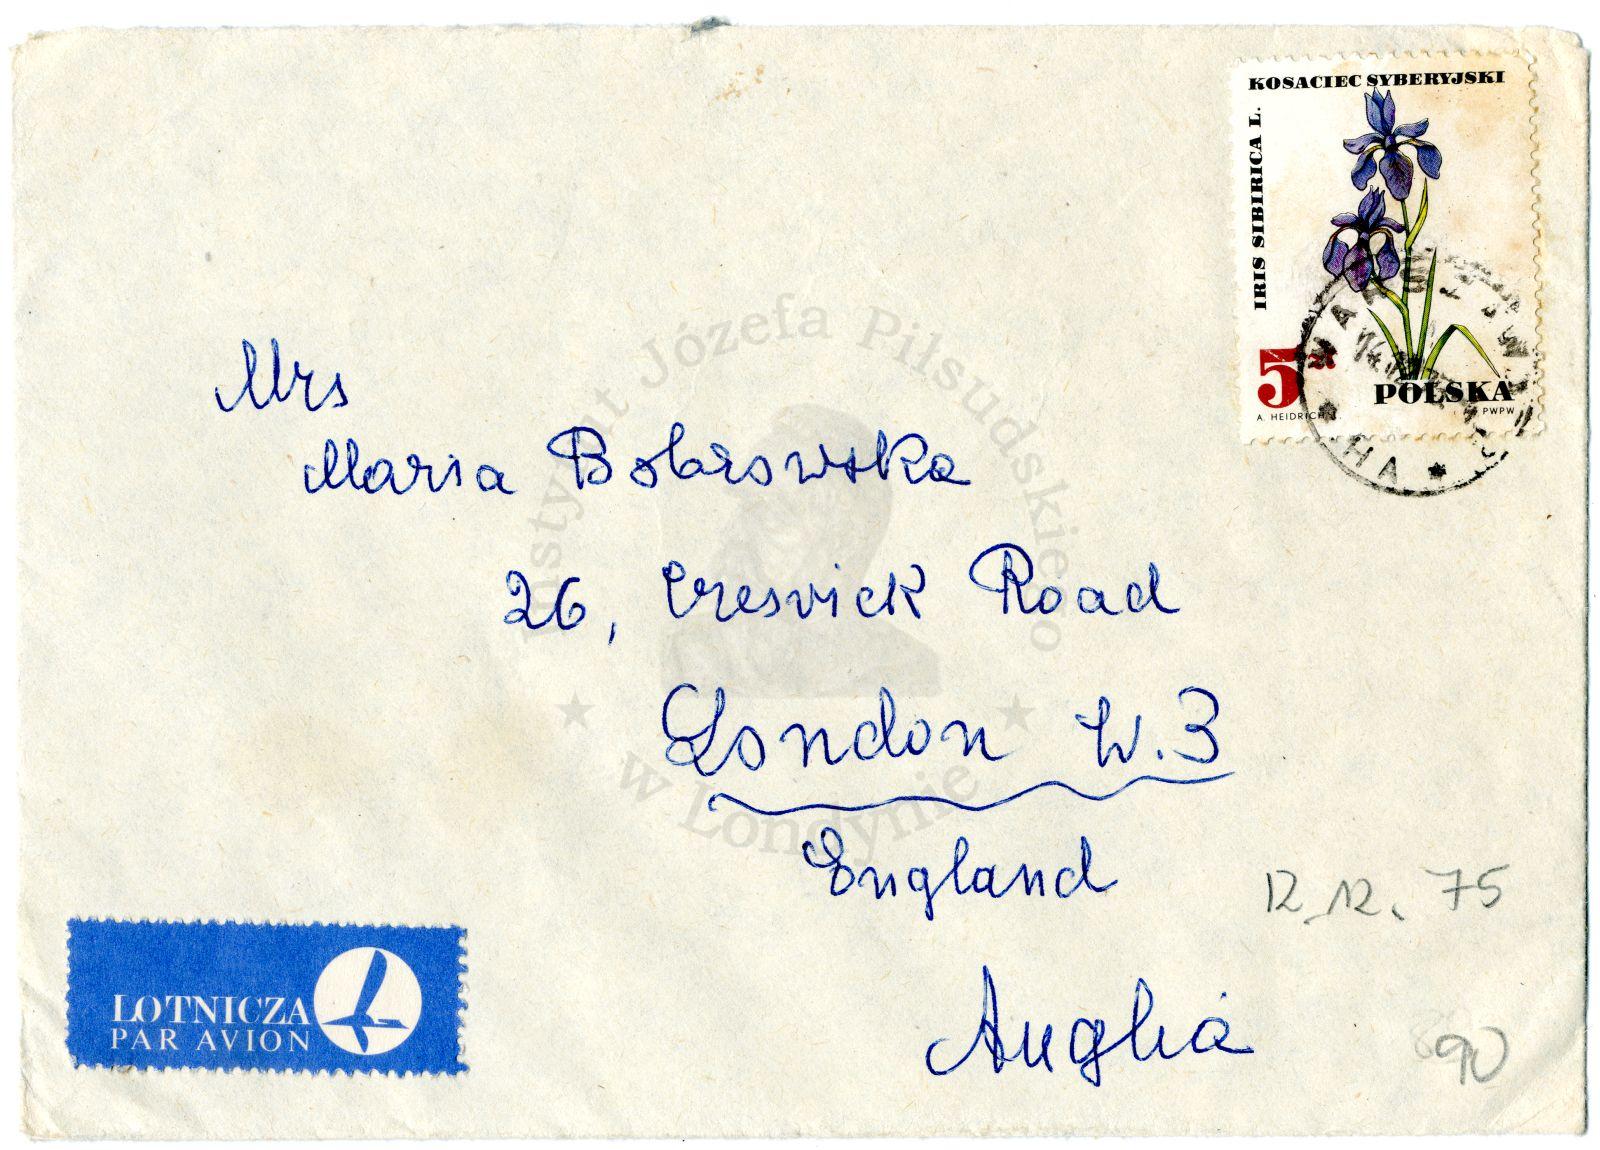 KOSACIEC SYBERYJSKI
IRIS SIBIRICA L.
5 zł
POLSKA
A. HEIDRICH
PWPW
WARSZAWA
HA
Instytut Józefa Piłsudskiego
w Londynie
Mrs
Maria Bobrowska
26, Creswick Road
London W.3
England
Anglia
12.12.75
90
LOTNICZA
PAR AVION